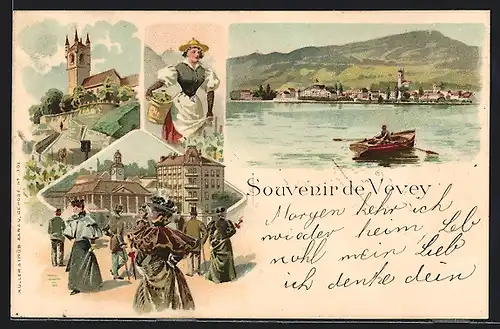 Souvenir de Vevey
Morgen kehr ich
wieder heim, Leb
wohl mein Lieb
ich denke dein
MÜLLER & TRÜB AARAU, DEPOSE. No. 101